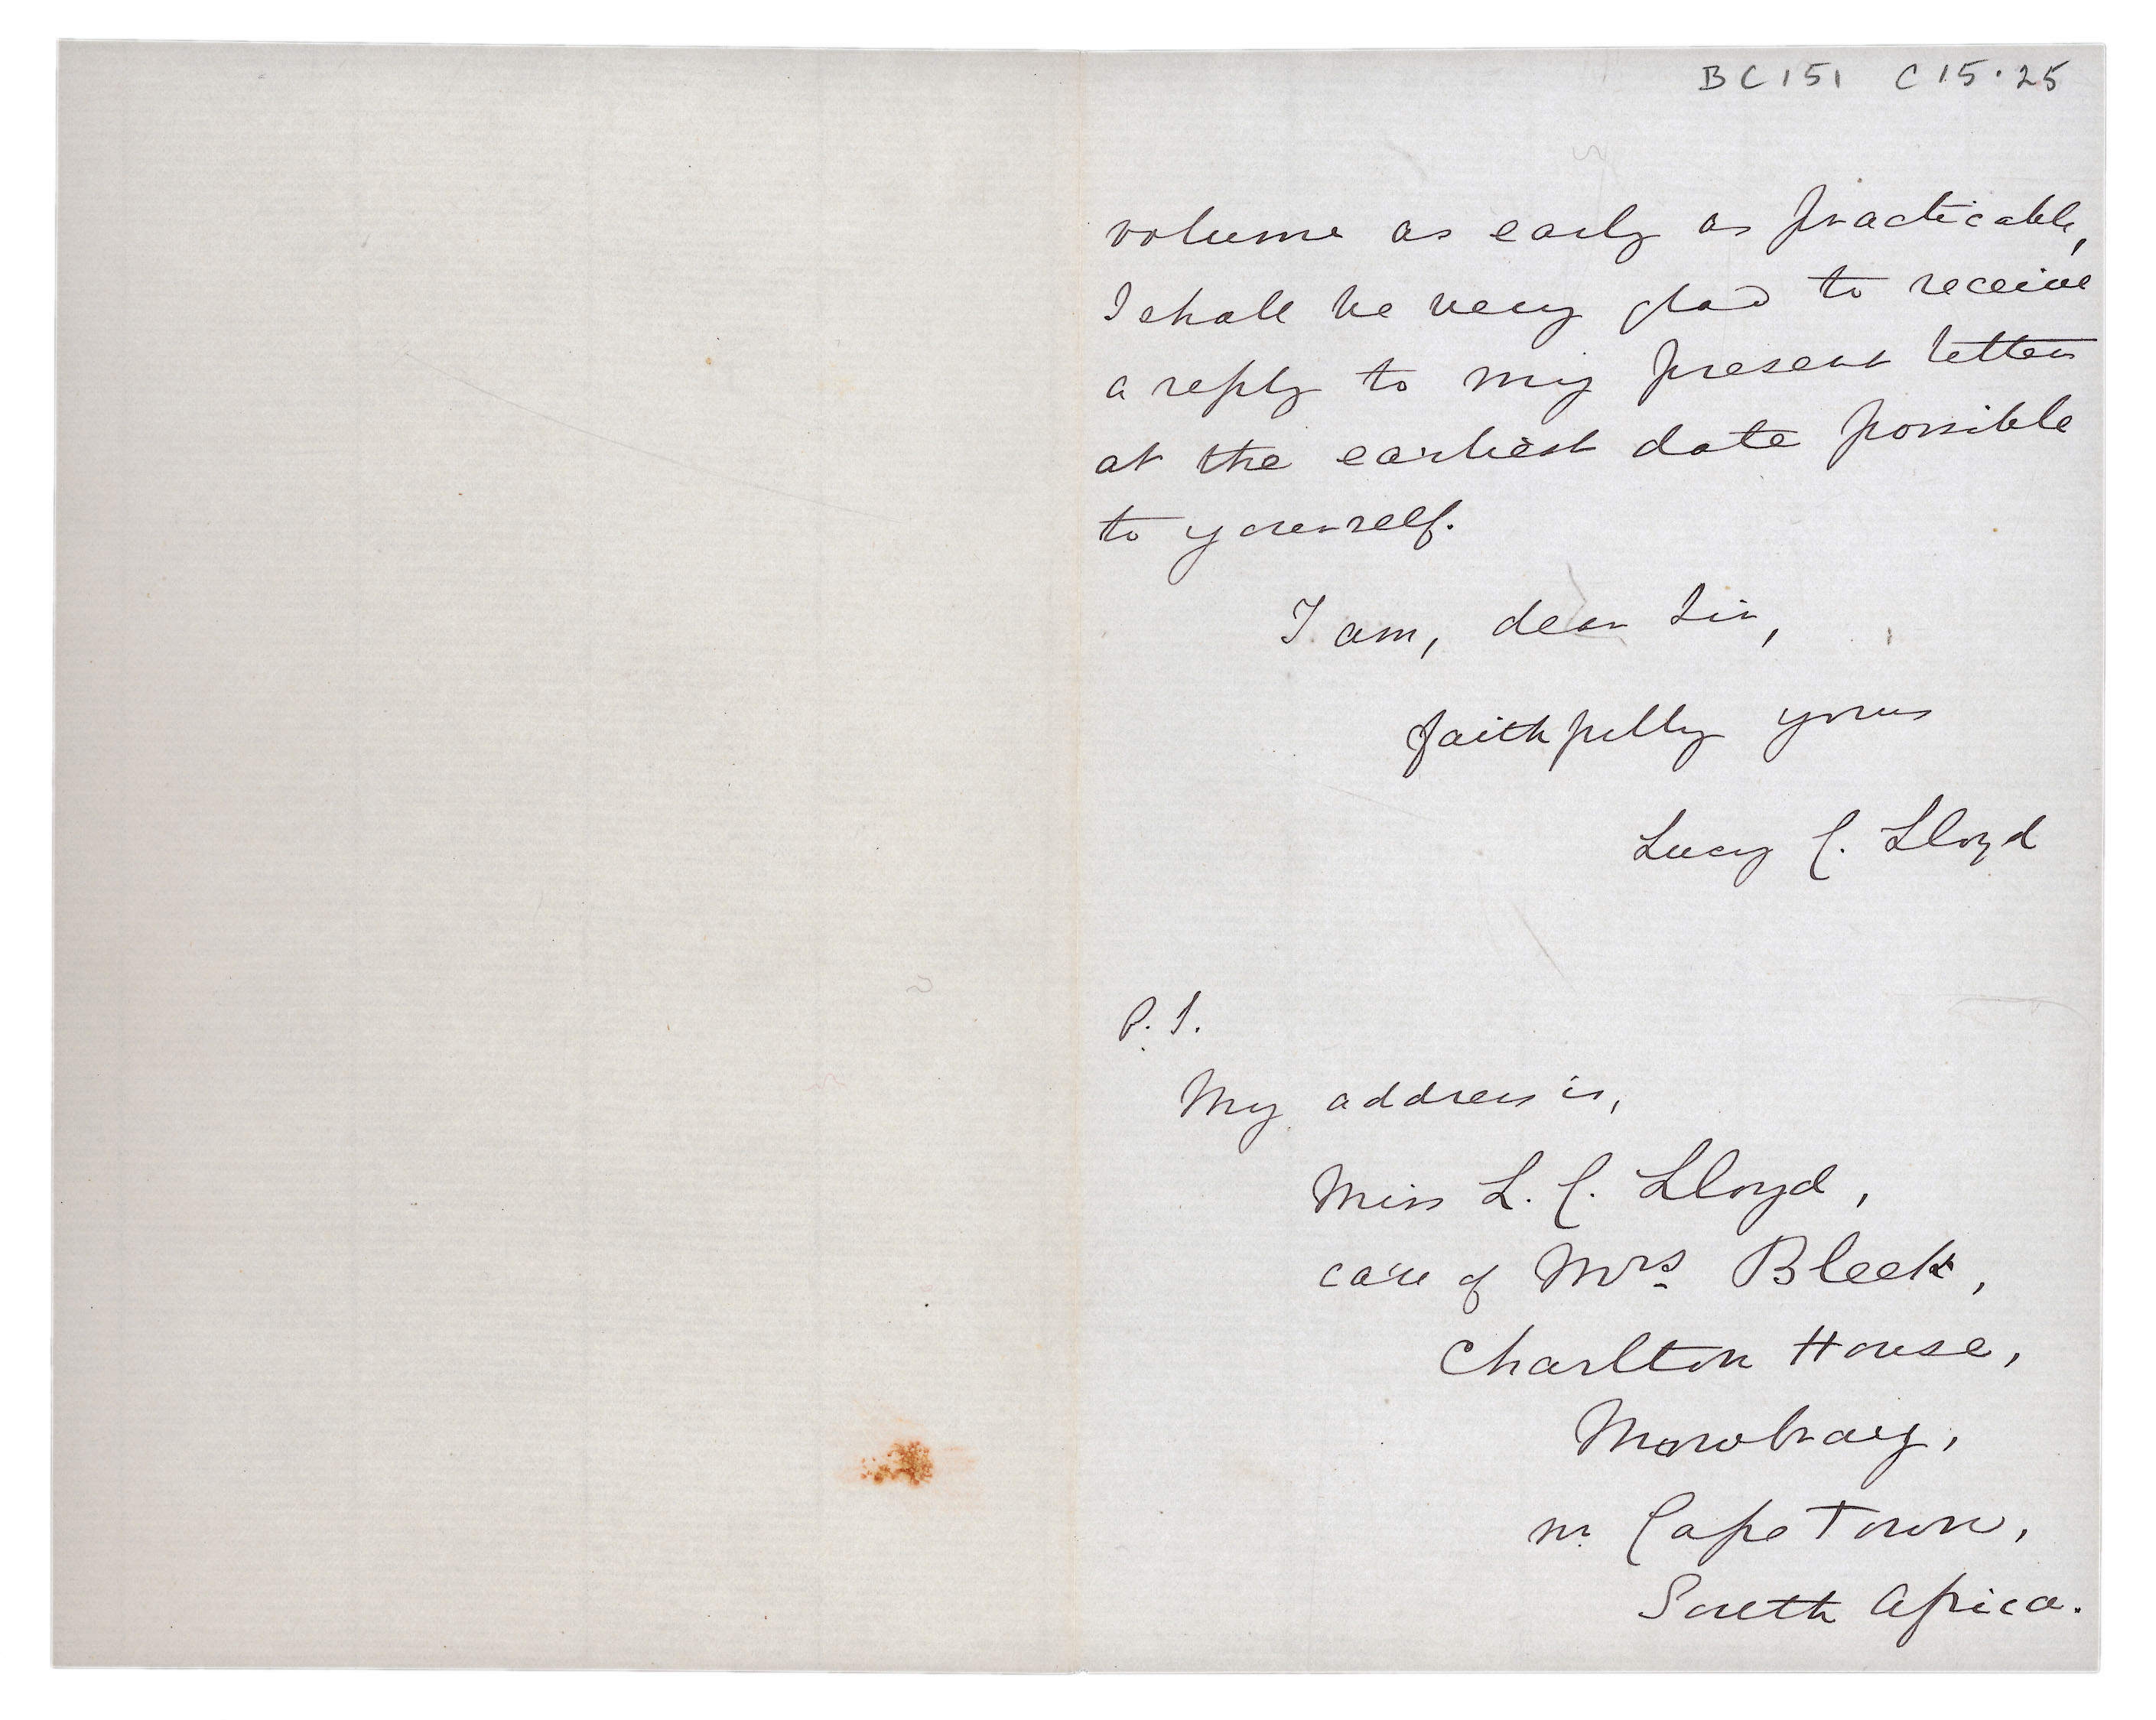 BC151 C15.25
volume as early as practicable,
I shall be very glad to receive
a reply to my present letter
at the earliest date possible
to yourself.
I am, dear Sir,
faithfully yours
Lucy C. Lloyd
P.S.
My address is,
Miss L. C. Lloyd,
care of Mrs. Bleek,
Charlton House,
Mowbray,
nr. Cape Town,
South Africa.